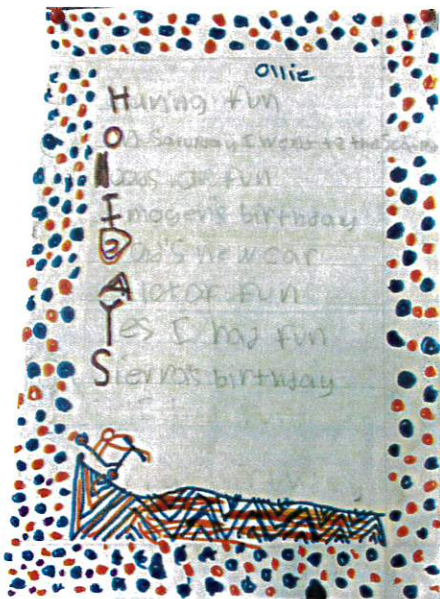 Ollie
Having fun
On Saturday I went to the
Loads of fun
Imogen's birthday
Dad's new car
A lot of fun
Yes I had fun
Sierra's birthday